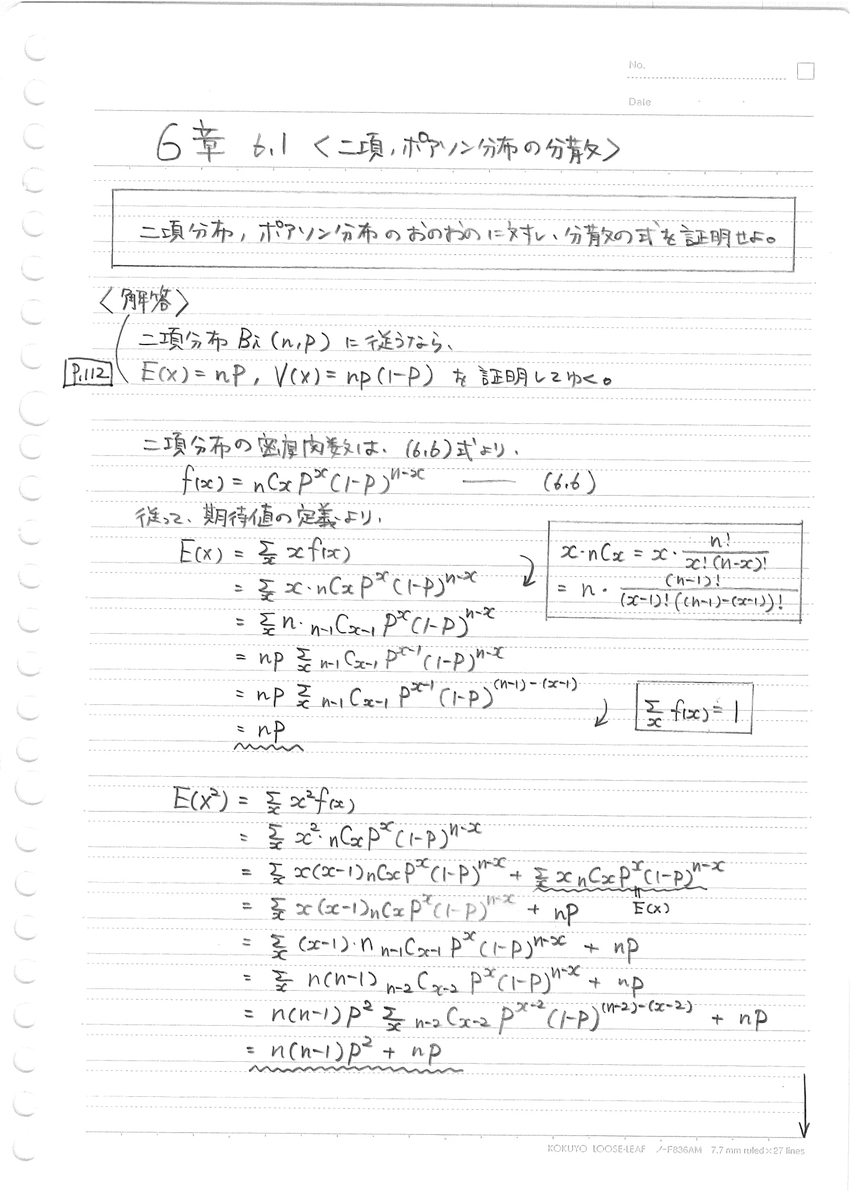 No.
Date
6章 6.1 〈二項,ポアソン分布の分散〉
二項分布,ポアソン分布のおのおのに対し、分散の式を証明せよ。
〈解答〉
二項分布 Bi(n,p) に従うなら、
P.112
E(x) = np, V(x) = np(1-p) を証明してゆく。
二項分布の密度関数は、(6.6)式より、
f(x) = nCx p^x (1-p)^{n-x} —— (6.6)
従って、期待値の定義より、
E(x) = Σ_x x f(x)
= Σ_x x・nCx p^x (1-p)^{n-x}
x・nCx = x・n!/(x!(n-x)!)
= n・(n-1)!/((x-1)!((n-1)-(x-1))!)
= Σ_x n・n-1Cx-1 p^x (1-p)^{n-x}
= np Σ_x n-1Cx-1 p^{x-1} (1-p)^{n-x}
= np Σ_x n-1Cx-1 p^{x-1} (1-p)^{(n-1)-(x-1)}
Σ_x f(x) = 1
= np
E(x²) = Σ_x x² f(x)
= Σ_x x²・nCx p^x (1-p)^{n-x}
= Σ_x x(x-1) nCx p^x (1-p)^{n-x} + Σ_x x nCx p^x (1-p)^{n-x}
= Σ_x x(x-1) nCx p^x (1-p)^{n-x} + np
E(x)
= Σ_x (x-1)・n n-1Cx-1 p^x (1-p)^{n-x} + np
= Σ_x n(n-1) n-2Cx-2 p^x (1-p)^{n-x} + np
= n(n-1)p² Σ_x n-2Cx-2 p^{x-2} (1-p)^{(n-2)-(x-2)} + np
= n(n-1)p² + np
KOKUYO LOOSE-LEAF ノ-F836AM 7.7 mm ruled×27 lines